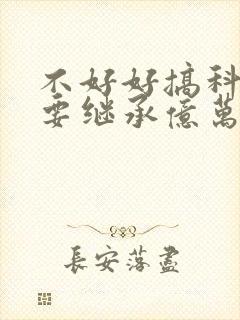 不好好搞科
要继承億萬
長安落盡